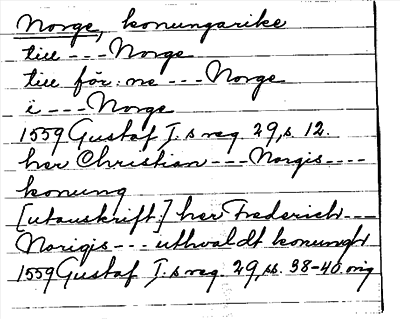 Norge, konungarike
till --- Norge
till för:ne --- Norge
i --- Norge
1559 Gustaf I.s reg. 29, s. 12.
her Christian --- Norgis ----
konung
[utanskrift:] her Frederich ---
Norigis --- uthvaldt konungh
1559 Gustaf I.s reg. 29, ss. 38-40. orig